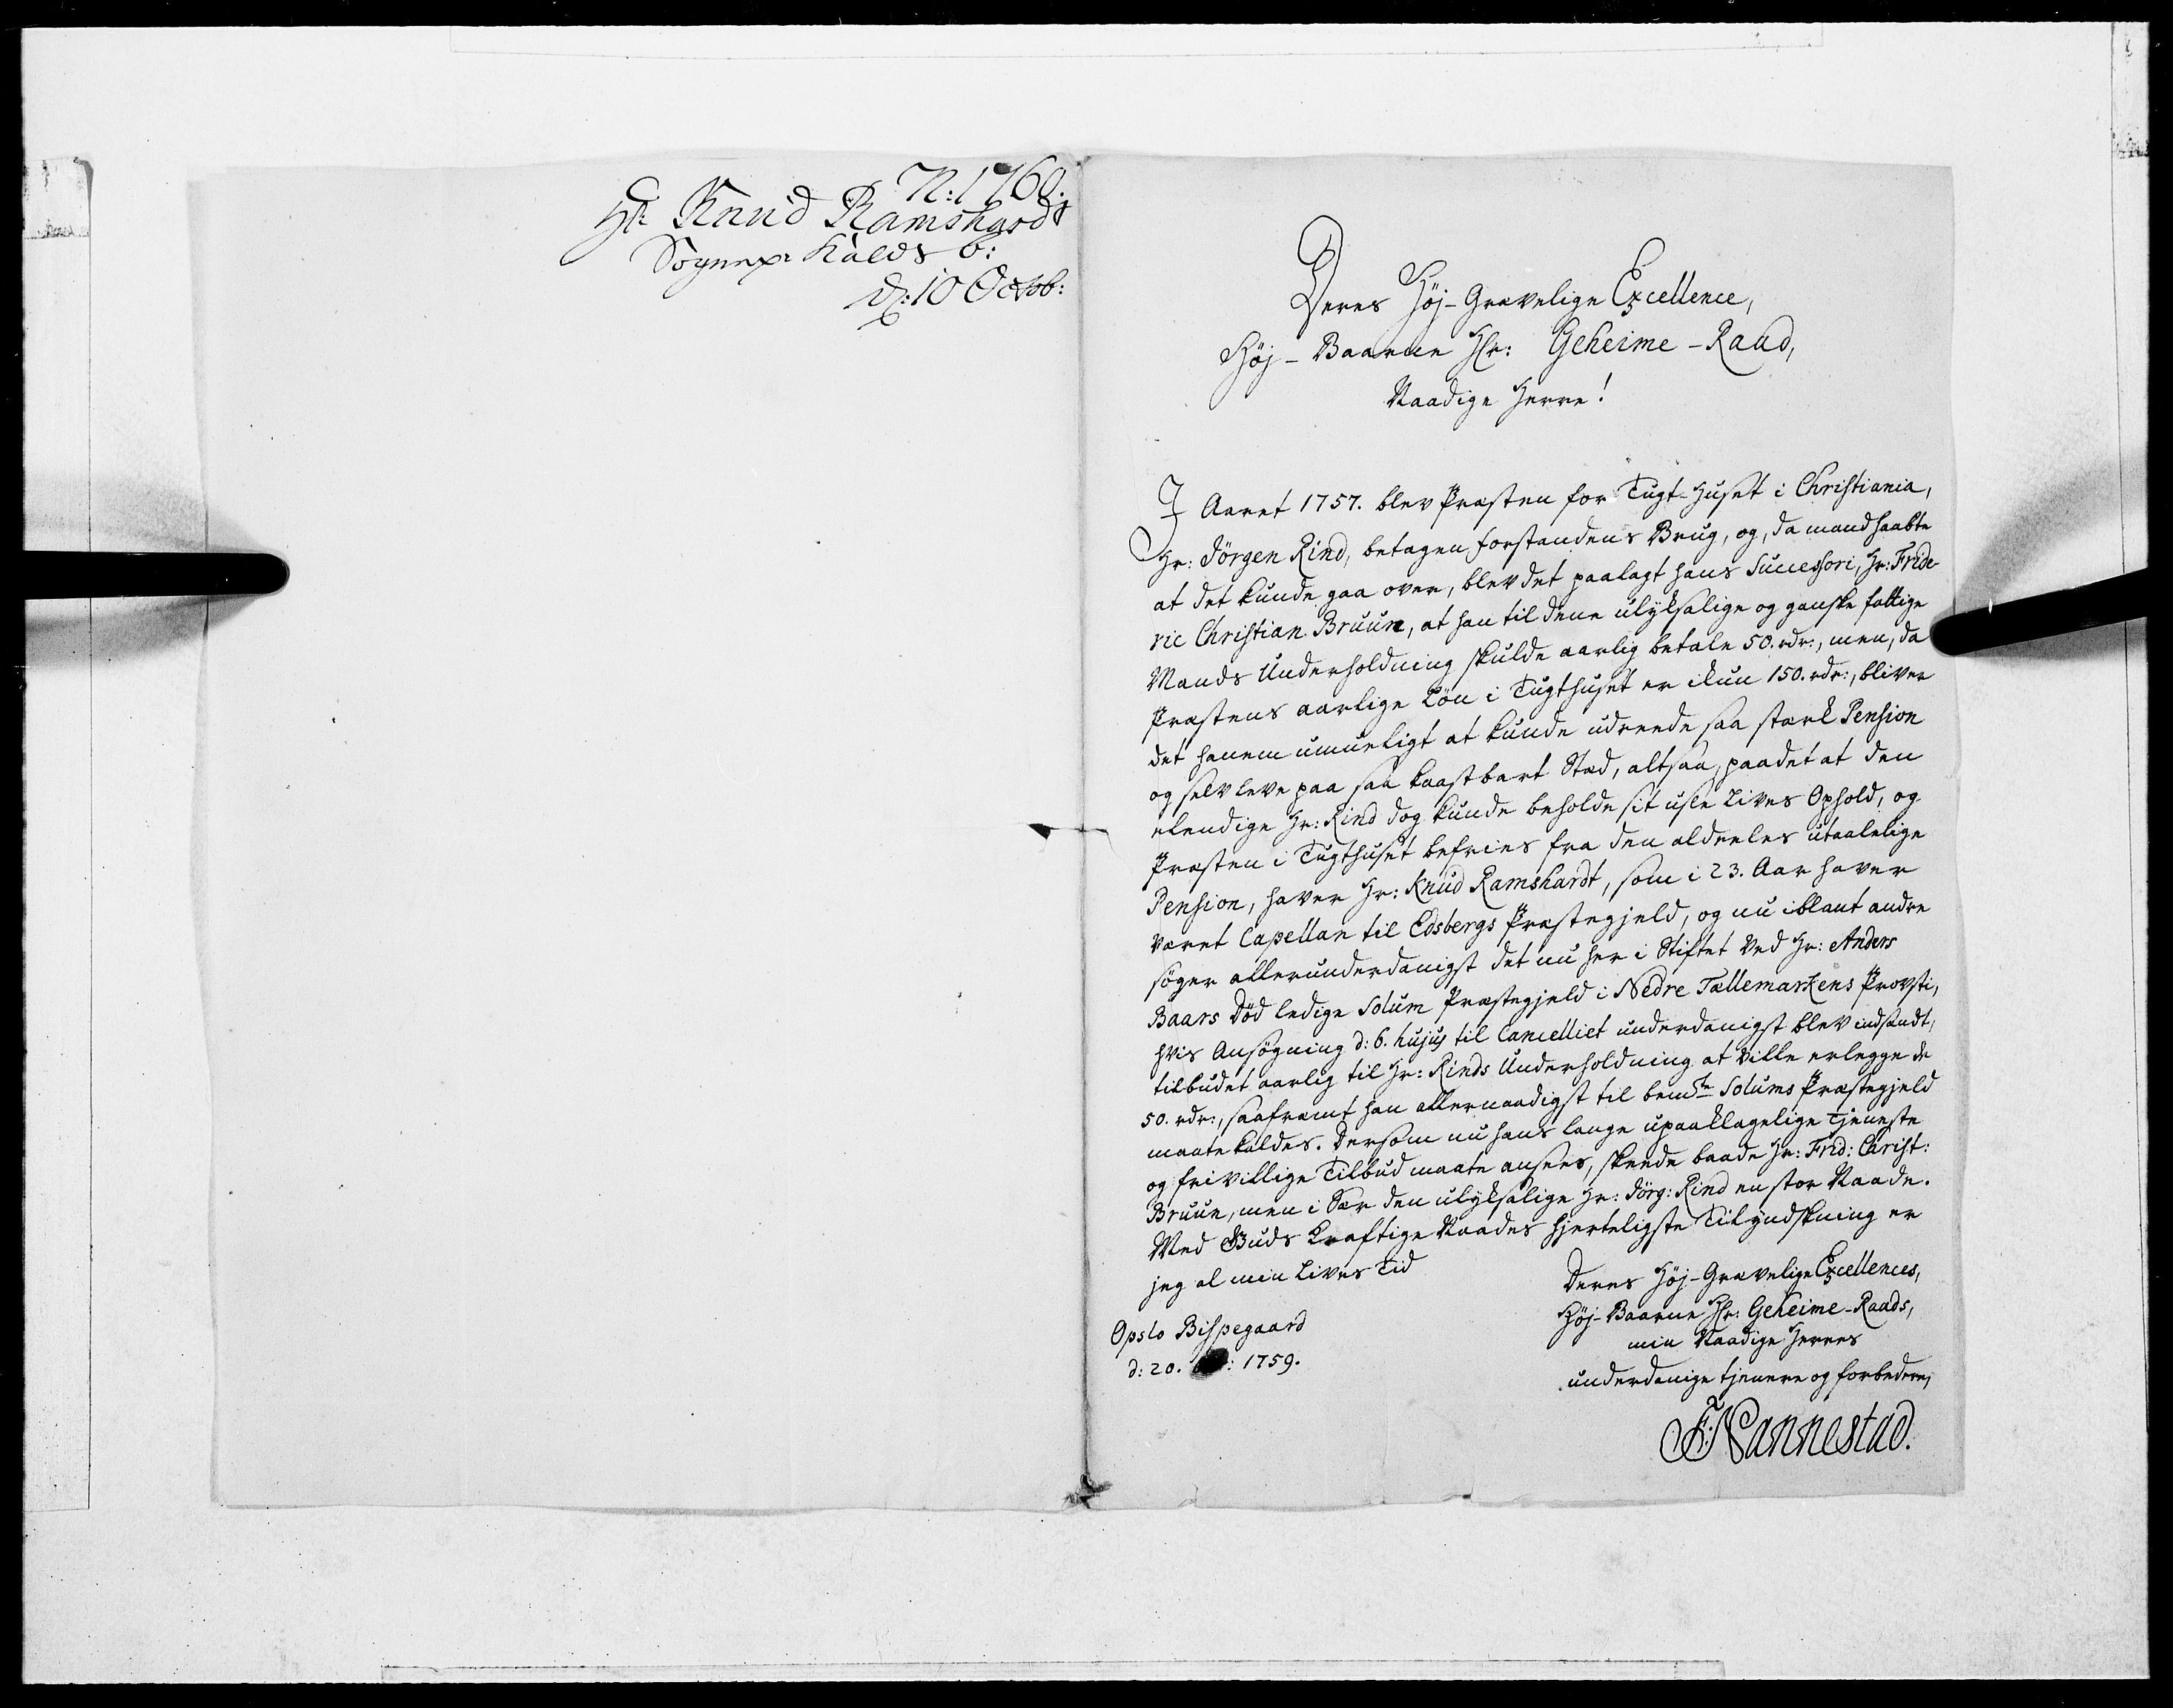 N: 1760.
Hr: Knud Ramshards
Sognepr: Kalds b:
d: 10 Octob:
Deres Høj-Grevelige Excellence,
Høj-Baarne Hr: Geheime-Raad,
Naadige Herre!
I Aaret 1757. blev Præsten for Tugt-Huset i Christiania,
Hr: Jörgen Rind, betagen forstandens Brug, og, da mand haabte
at det kunde gaa over, blev det paalagt hans Successori, Hr: Fride-
ric Christian Bruun, at han til denne ulyksalige og ganske fattige
Mands Underholdning skulde aarlig betale 50. rdr:, men, da
Præstens aarlige Løn i Tugthuset er ikun 150. rdr:, bliver
det hanem umueligt at kunde udreede saa stærk Pension
og selv leve paa saa kaastbart Stæd, altsaa, paa det at den
elendige Hr: Rind dog kunde beholde sit usle Lives Ophold, og
Præsten i Tugthuset befries fra den aldeeles utaalelige
Pension, haver Hr: Knud Ramshardt, som i 23. Aar haver
været Capellan til Edsbergs Præstegjeld, og nu iblant andre
søger allerunderdanigst det nu her i Stiftet ved Hr: Anders
Baars Død ledige Solum Præstegjeld i Nedre Tællemarkens Provsti,
hvis Ansøgning d: 6. hujus til Cancelliet underdanigst blev indsendt,
tilbudet aarlig til Hr: Rinds Underholdning at ville erlegge de
50. rdr:, saafremt han allernaadigst til bemte Solums Præstegjeld
maate kaldes. Dersom nu hans lange upaaklagelige Tjeneste
og frivillige Tilbud maate ansees, skeede baade Hr: Frid: Christ:
Bruun, men i Sær den ulyksalige Hr: Jörg: Rind en stor Naade.
Med Guds kraftige Naades hjerteligste Tilyndskning er
jeg al min Lives Tid
Deres Høj-Grevelige Excellences,
Høj-Baarne Hr: Geheime-Raads,
min Naadige Herres
Opslo Bispegaard
d: 20. 1759.
underdanige tjenere og forbedere,
F: Nannestad.